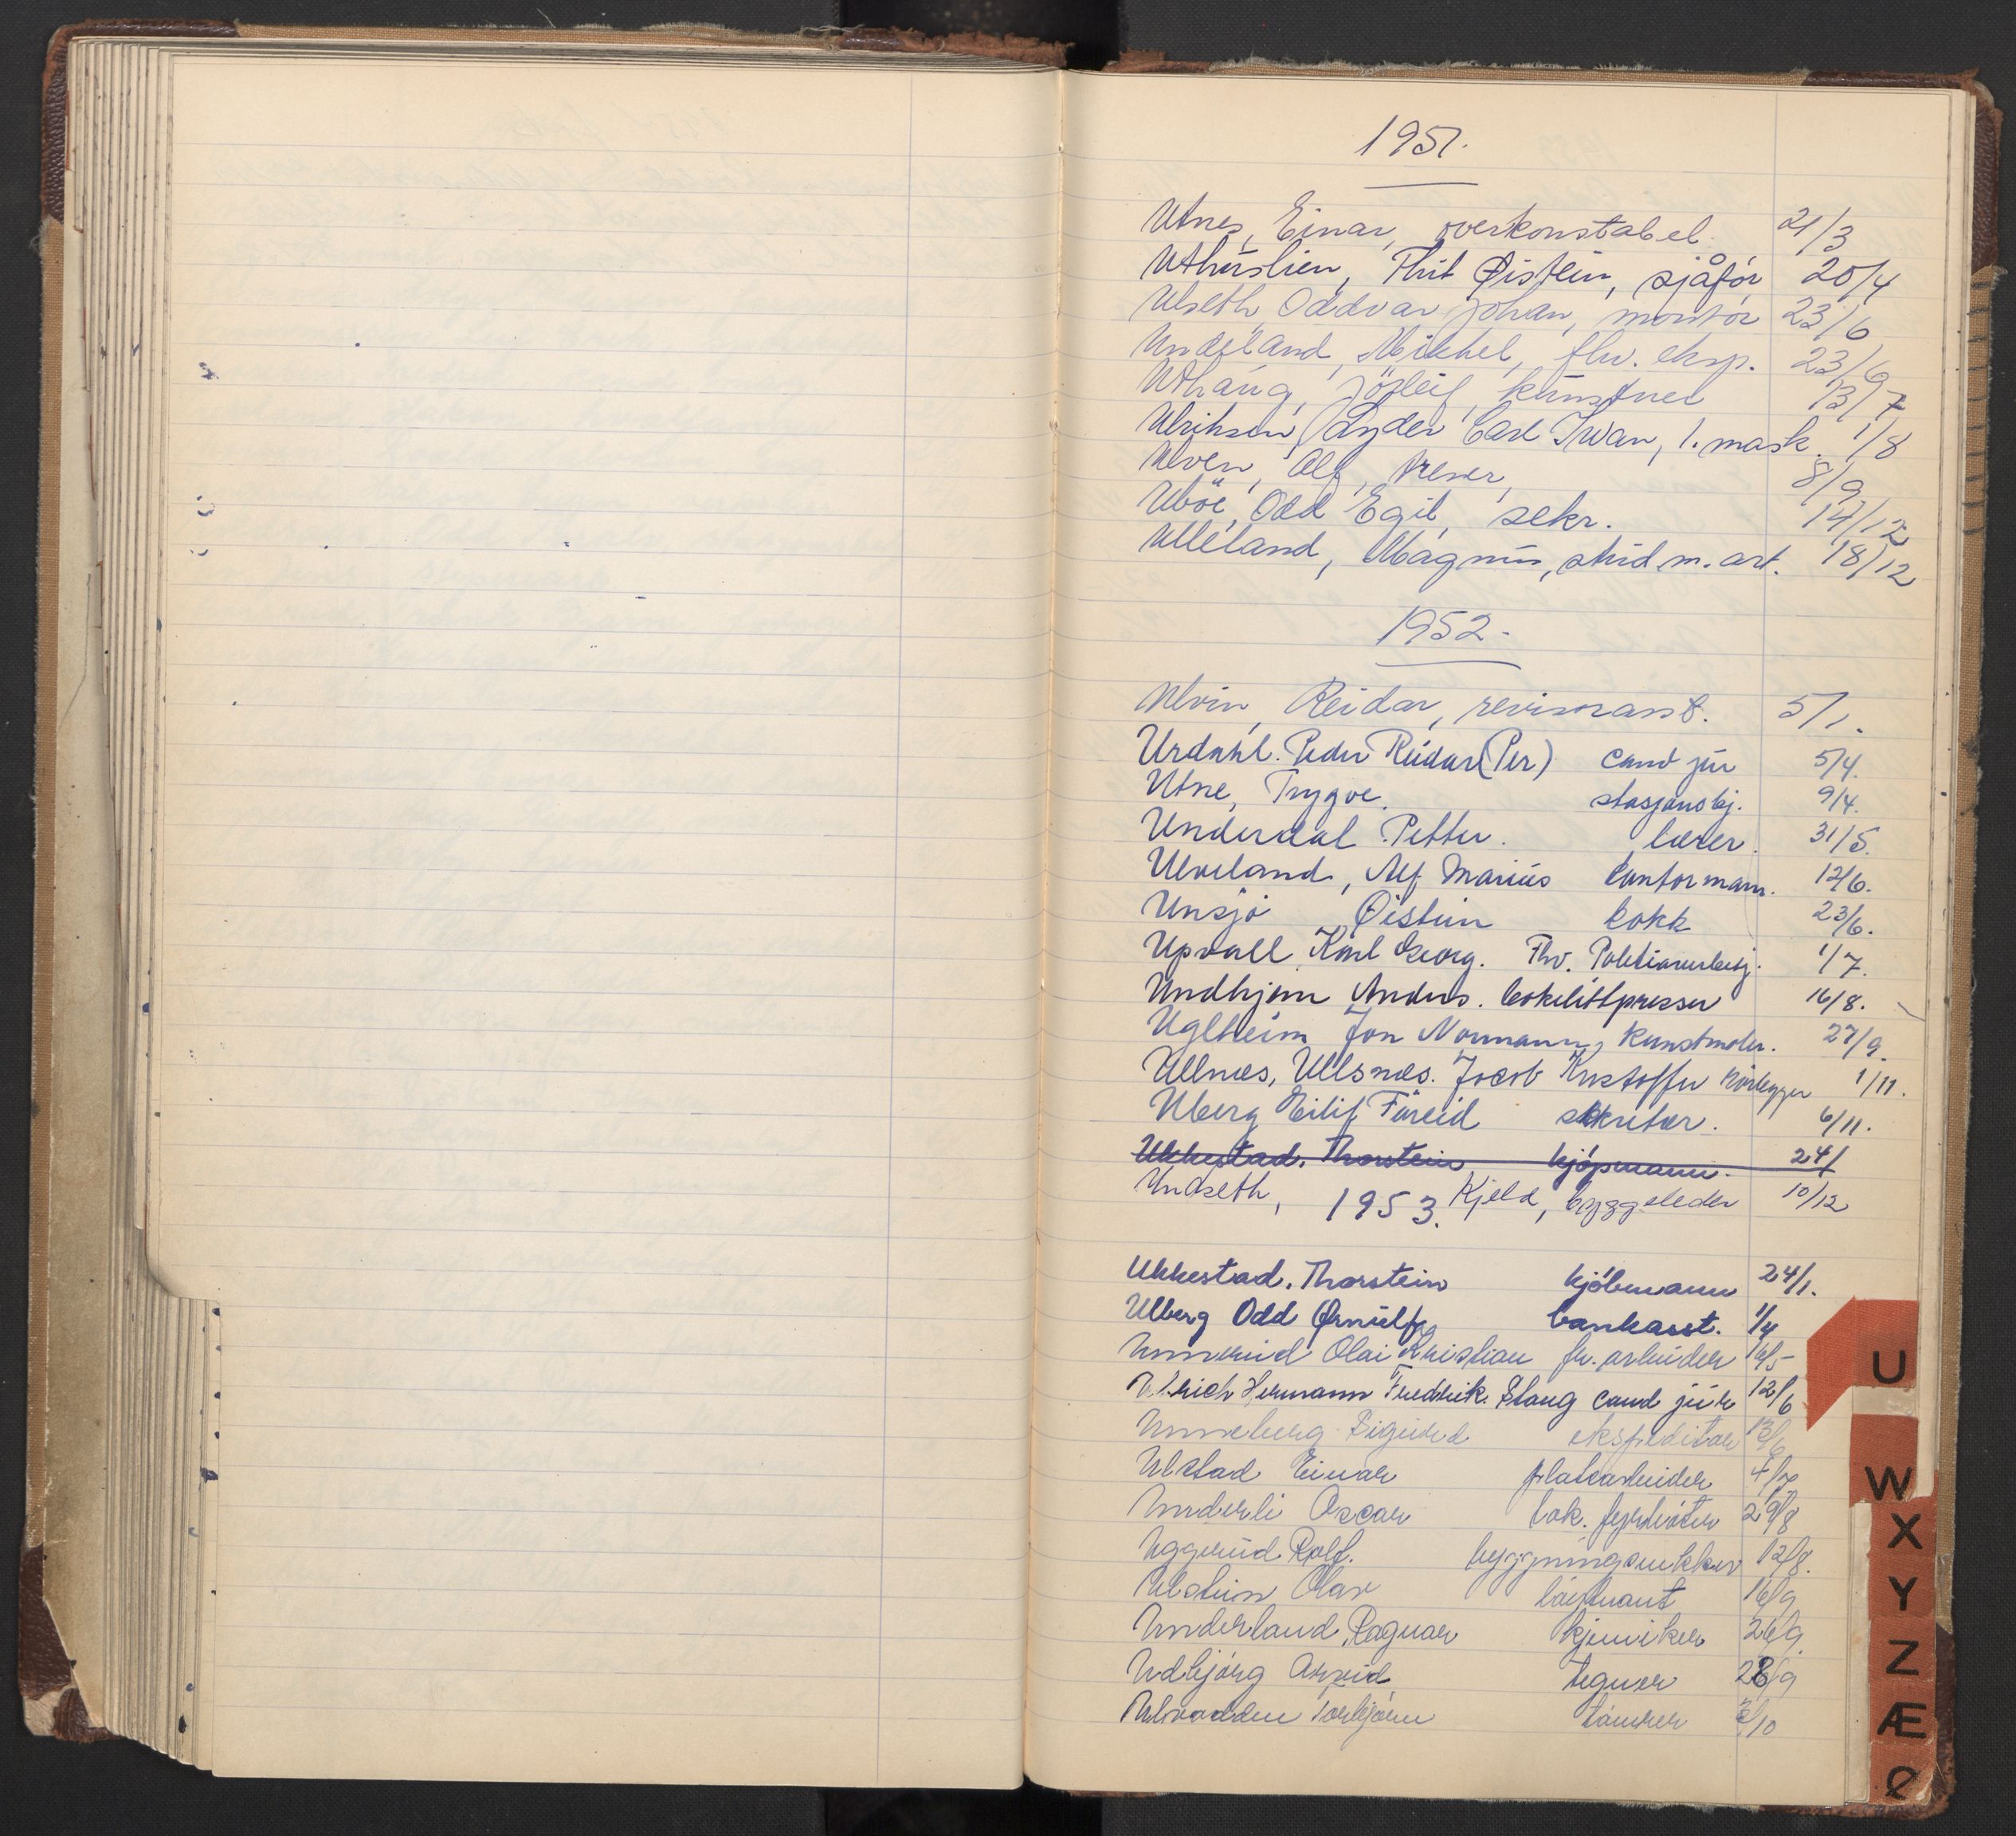 1951.
Utnes, Einar, overkonstabel. 21/3
Uthuslien, Thit Øistein, sjåfør 20/4
Ulseth, Oddvar Johan, montør 23/6
Undeland, Mikhel, fhv. eksp. 23/6
Uthaug, Jörleif, kunstner 13/7
Ulriksen, Lyder Carl Iwan, 1. mask. 1/8
Ulven, Alf, 8/9
Uböe, Odd Egil, sekr. 14/12
Ulleland, Magnus, stud. m. art. 18/12
1952.
Ulvin, Reidar, revisorasst. 5/1.
Urdahl. Peder Reidar (Per) cand jur 5/4.
Utne, Trygve. stasjonsbj. 9/4.
Underdal Petter. lærer. 31/5.
Ulveland, Alf Marius kontormann. 12/6.
Unsjø Øistein kokk 23/6.
Upvall, Karl Georg. Fhv. 1/7.
Undhjem Anders. bakelittpresser 16/8.
Ugelheim Jon Normann, Kunstmaler. 27/9.
Ullnæs, Ullsnæs. Jacob Kristoffer rørlegger 1/11.
Ulberg Eilif Föreid sekretær. 6/11.
Ukkestad. Thorstein, kjøpmann. 24/
Undseth, Kjeld, byggeleder 10/12
1953.
Ukkestad. Thorstein kjøbmann 24/1.
Ulberg Odd Ørnulf bankasst. 1/4
Unnerud Olai Kristian fv. arbeider 16/5
Ulrich Hermann Fredrik Stang cand jur 12/6
Unneberg Sigurd ekspeditør 13/6
Ulstad Einar platearbeider 4/7
Underli Oscar lok. fyrbøter 29/8
Uggerud Rolf. bygningsnekker 12/8.
Ulstein Olav løytnant 16/9
Underland, Ragnar kjemiker 26/9
Udbjørg Arvid tegner 28/9
Ulvodden Torbjørn tømrer /10
U
W
X
Y
Z
Æ
Ø